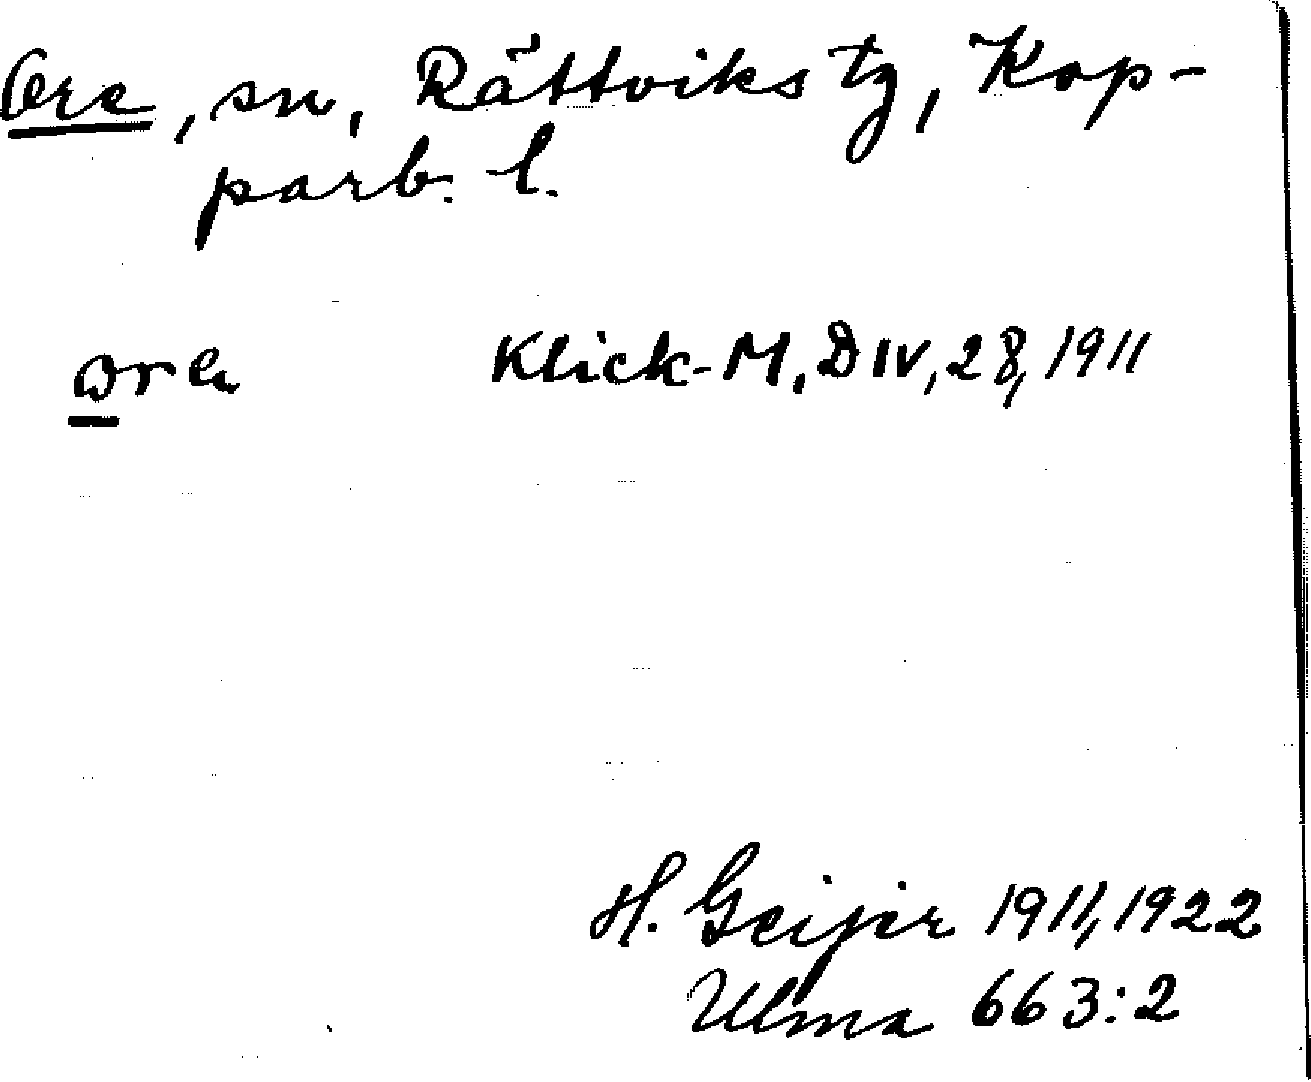 Ore, sn, Rättviks tg, Kop-
parb. l.
Klick-M, D IV, 28, 1911
H. Geijer 1911, 1922
Ulma 663:2